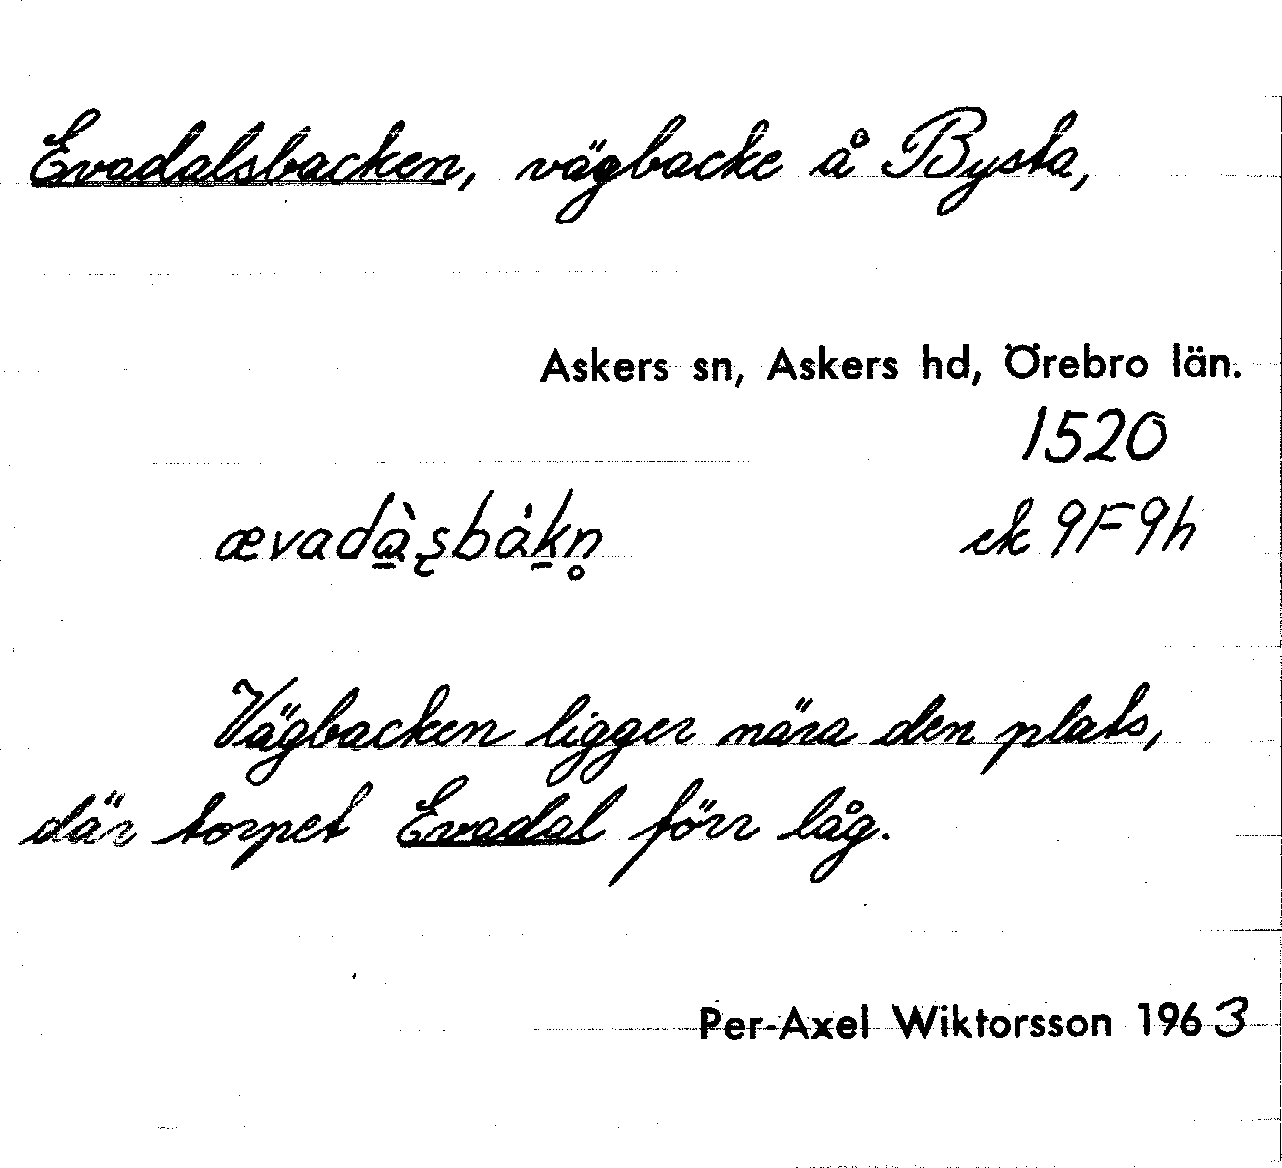 Evadalsbacken, vägbacke å Bysta,
Askers sn, Askers hd, Örebro län.
1520
ævadà̱s̨bȧḵn̥
ek 9F9h
Vägbacken ligger nära den plats,
där torpet Evadal förr låg.
Per-Axel Wiktorsson 1963